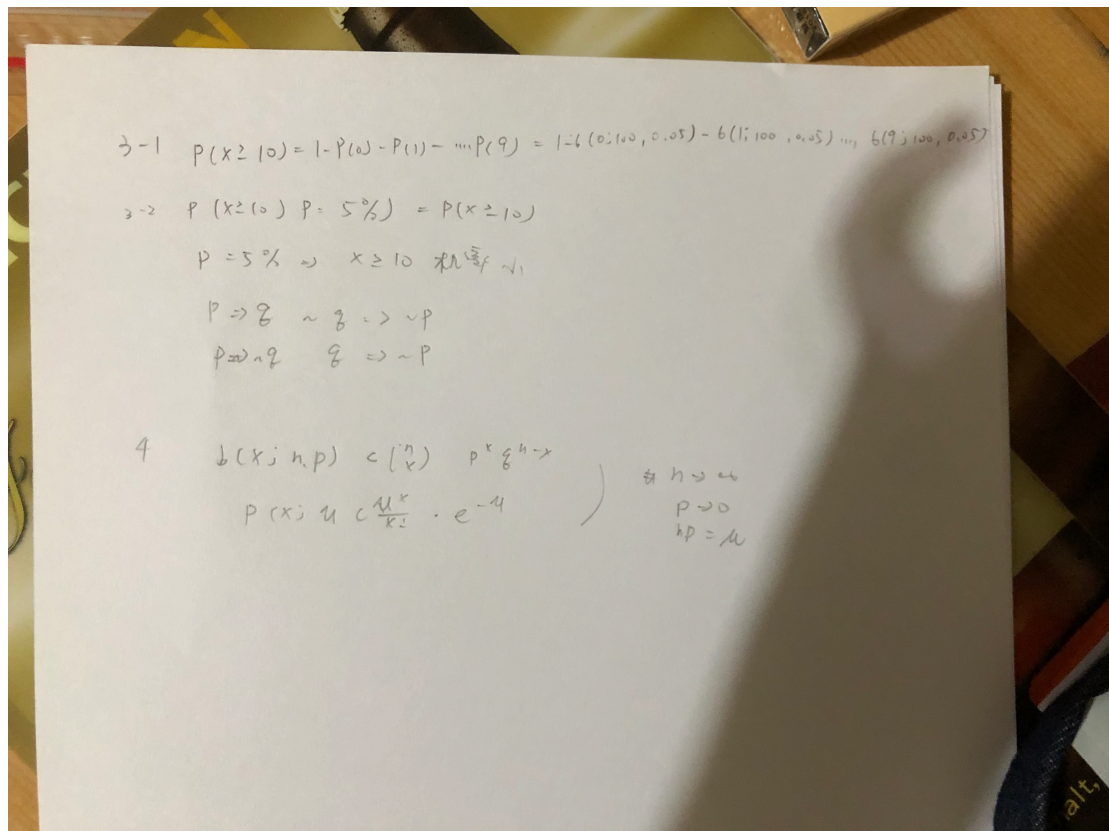 3-1 P(X≥10) = 1-P(0)-P(1)-....P(9) = 1-b(0;100,0.05)-b(1;100,0.05)..., b(9;100,0.05)
3-2 P(X≥10) P=5%) = P(X≥10)
P=5% ⇒ X≥10 机率小
P⇒q ~q => ~P
P⇒~q q => ~P
4 b(x; n,p) c(n x) p^x q^n-x
P(x; μ c μ^x/x! · e^-μ
n→∞
P→0
np = μ
alt,